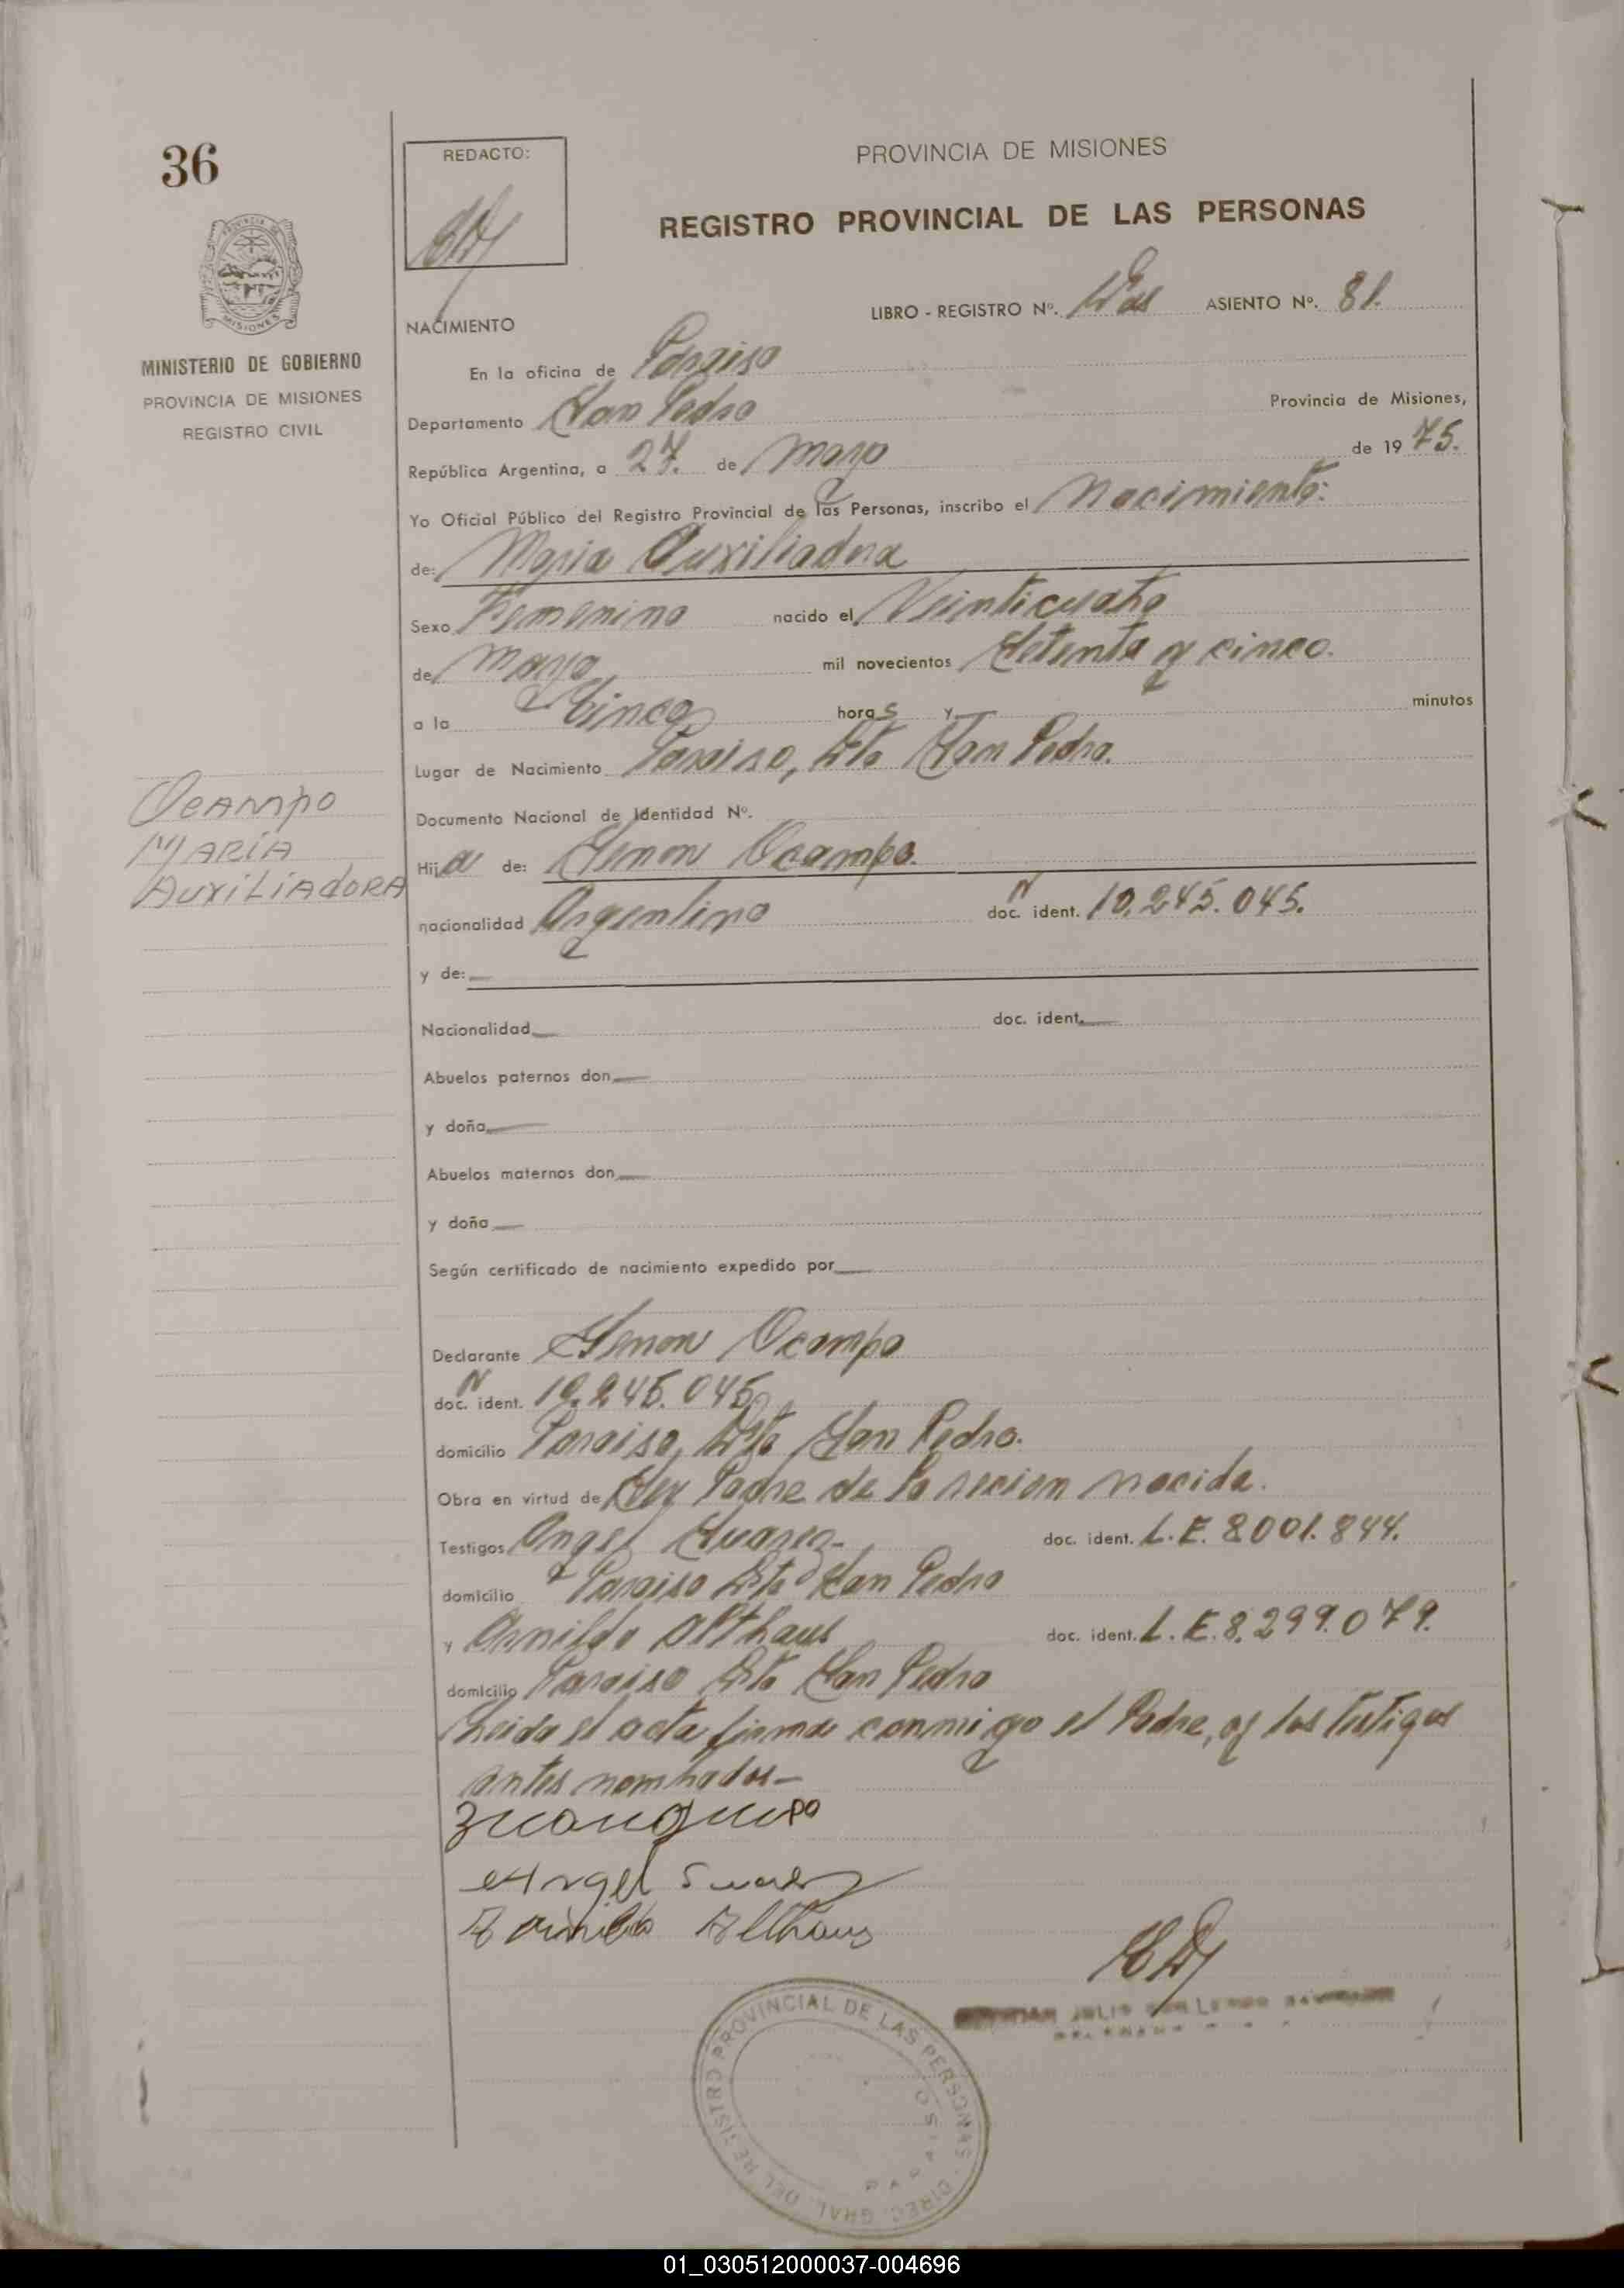 36
REDACTO:
PROVINCIA DE MISIONES
REGISTRO PROVINCIAL DE LAS PERSONAS
LIBRO - REGISTRO Nº. ASIENTO Nº. 81.
NACIMIENTO
MINISTERIO DE GOBIERNO
PROVINCIA DE MISIONES
REGISTRO CIVIL
En la oficina de Paraiso
Departamento San Pedro Provincia de Misiones,
República Argentina, a 27. de mayo de 19 75.
Yo Oficial Público del Registro Provincial de las Personas, inscribo el Nacimiento:
de: Maria Auxiliadora
Sexo Femenino nacido el Veinticuatro
de mayo mil novecientos Setenta y cinco.
a la Cinco horas y minutos
Lugar de Nacimiento Paraiso, Dto San Pedro.
Documento Nacional de Identidad Nº.
OCAMPO
MARÍA
AUXILIADORA
Hija de: Zenon Ocampo.
nacionalidad Argentino doc. N ident. 10.245.045.
y de: —
Nacionalidad — doc. ident. —
Abuelos paternos don —
y doña —
Abuelos maternos don —
y doña —
Según certificado de nacimiento expedido por —
Declarante Zenon Ocampo
doc. N ident. 10.245.045.
domicilio Paraiso, Dto San Pedro.
Obra en virtud de Ser Padre de la recien nacida.
Testigos Angel Suarez- doc. ident. L.E. 8001.844.
domicilio Paraiso Dto San Pedro
y Arnildo Althaus doc. ident. L.E.8.299.079.
domicilio Paraiso Dto San Pedro
Leida el acta firma conmigo el Padre, y los testigos
antes nombrados-
Angel Suarez
Althaus
DIREC. GRAL. DEL REGISTRO PROVINCIAL DE LAS PERSONAS
PARAISO
01_030512000037-004696